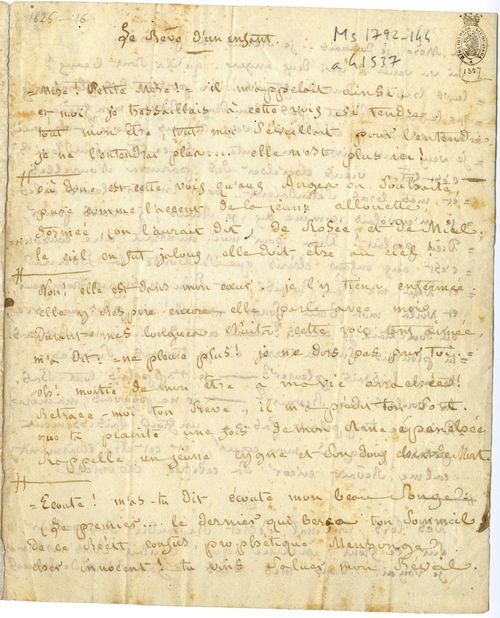 1826 - 16
Ms 1792-144
a 41537
1837
Le Rêve d'un enfant.
= Mère! Petite Mère! = il m'appelait ainsi.
et moi je tressaillais à cette voix si tendre,
tout mon être tout moi s'éveillait pour l'entendre
je ne l'entendrai plus... elle n'est plus ici!
où donc est cette voix qu'aux Anges on souhaite,
pure comme l'accent de la jeune allouette
formée, on l'aurait dit, de Rosée et de Miel.
le ciel en fut jaloux, elle doit être au ciel!
Non! elle est dans mon cœur, je l'y tiens enfermée.
elle y respire encore, elle parle avec moi,
Durant mes longues Nuits cette voix tant aimée
m'a dit: = ne pleure plus! je ne dors pas pour toi. =
oh! moitié de mon être à ma vie arrachée!
Retrace-moi ton Rêve, il m'a prédit ton sort.
que ta plainte une fois de mon Âme épanchée
Rappelle un jeune cygne et son doux chant de Mort
= Ecoute! m'as-tu dit écoute mon beau songe!
Le premier... le dernier qui berça ton Sommeil
de ce Récit confus, prophétique Mensonge,
cher innocent! tu vins saluer mon Réveil.